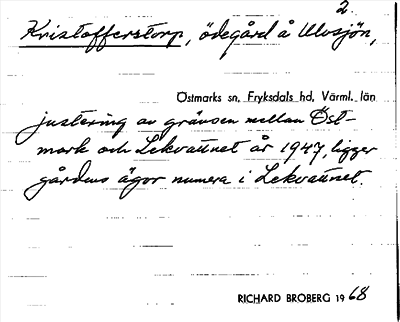 2.
Kristofferstorp, ödegård å Ulvsjön,
Östmarks sn, Fryksdals hd, Värml. län
justering av gränsen mellan Öst-
mark och Lekvattnet år 1947, ligger
gårdens ägor numera i Lekvattnet.
RICHARD BROBERG 1968